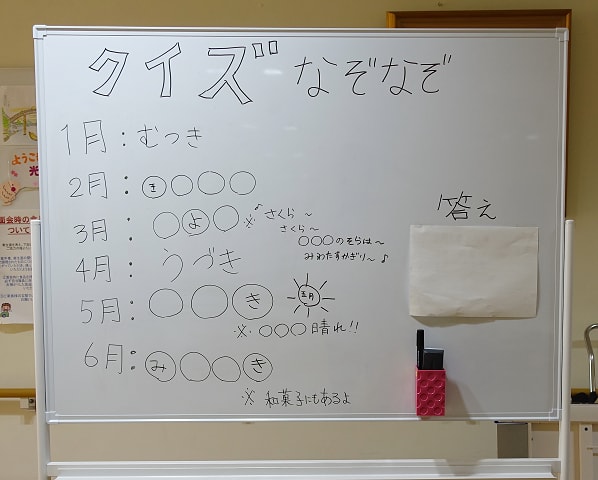 クイズ なぞなぞ
1月：むつき
2月：き○○○
3月 ○よ○ ※♪さくら～
さくら～
○○○のそらは～
みわたすかぎり～♪
4月 うづき
5月：○○き 五月
※○○○晴れ!!
6月：み○○き
※和菓子にもあるよ
答え
ようこ
光
面会時の
ついて